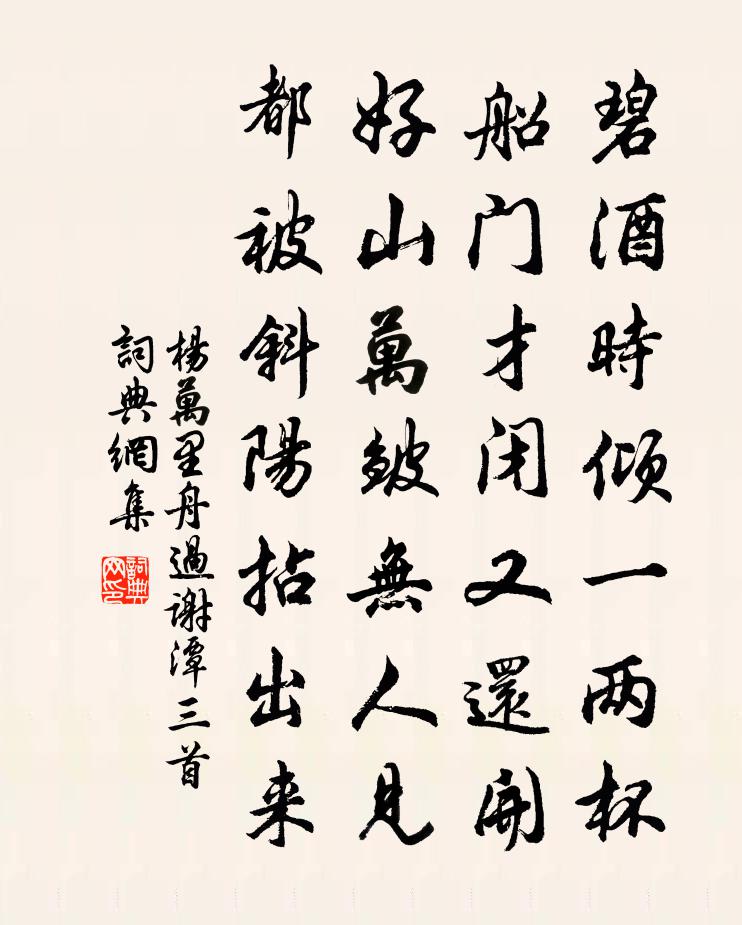 碧酒時傾一两杯
船门才闭又還開
好山萬皴無人見
都被斜陽拈出来
楊萬里舟過謝潭三首
詞典網集
詞典网印